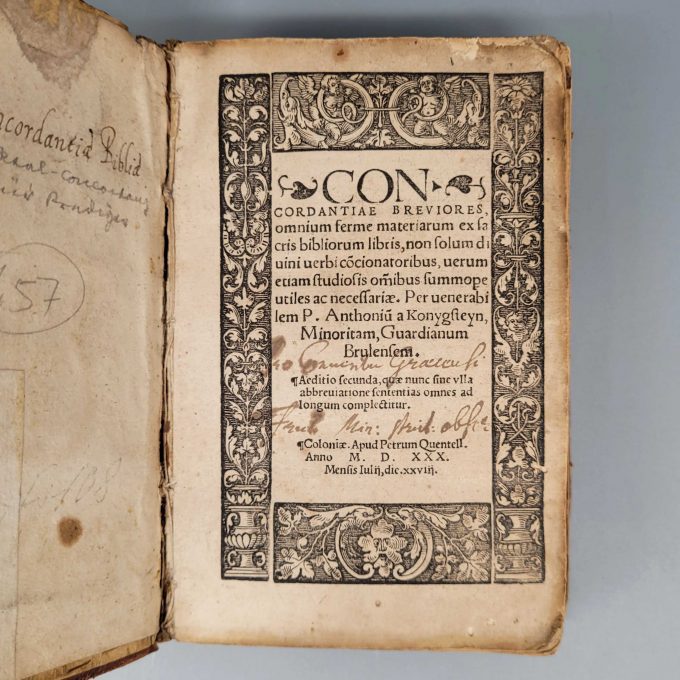 Concordantia Biblia
57
CON
CORDANTIAE BREVIORES,
omnium ferme materiarum ex ſa
cris bibliorum libris, non ſolum di
uini uerbi cõcionatoribus, uerum
etiam ſtudioſis om̃ibus ſummope
utiles ac neceſſariæ. Per uenerabi
lem P. Anthoniũ a Konygſteyn,
Minoritam, Guardianum
Brulenſem.
Pro Conventu Graecensi
¶Aeditio ſecunda, quæ nunc ſine vlla
abbreuiatione ſententias omnes ad
longum complectitur.
Fratr Min: strict. obser
¶Coloniæ. Apud Petrum Quentell.
Anno M. D. XXX.
Menſis Iulij, die. xxviij.